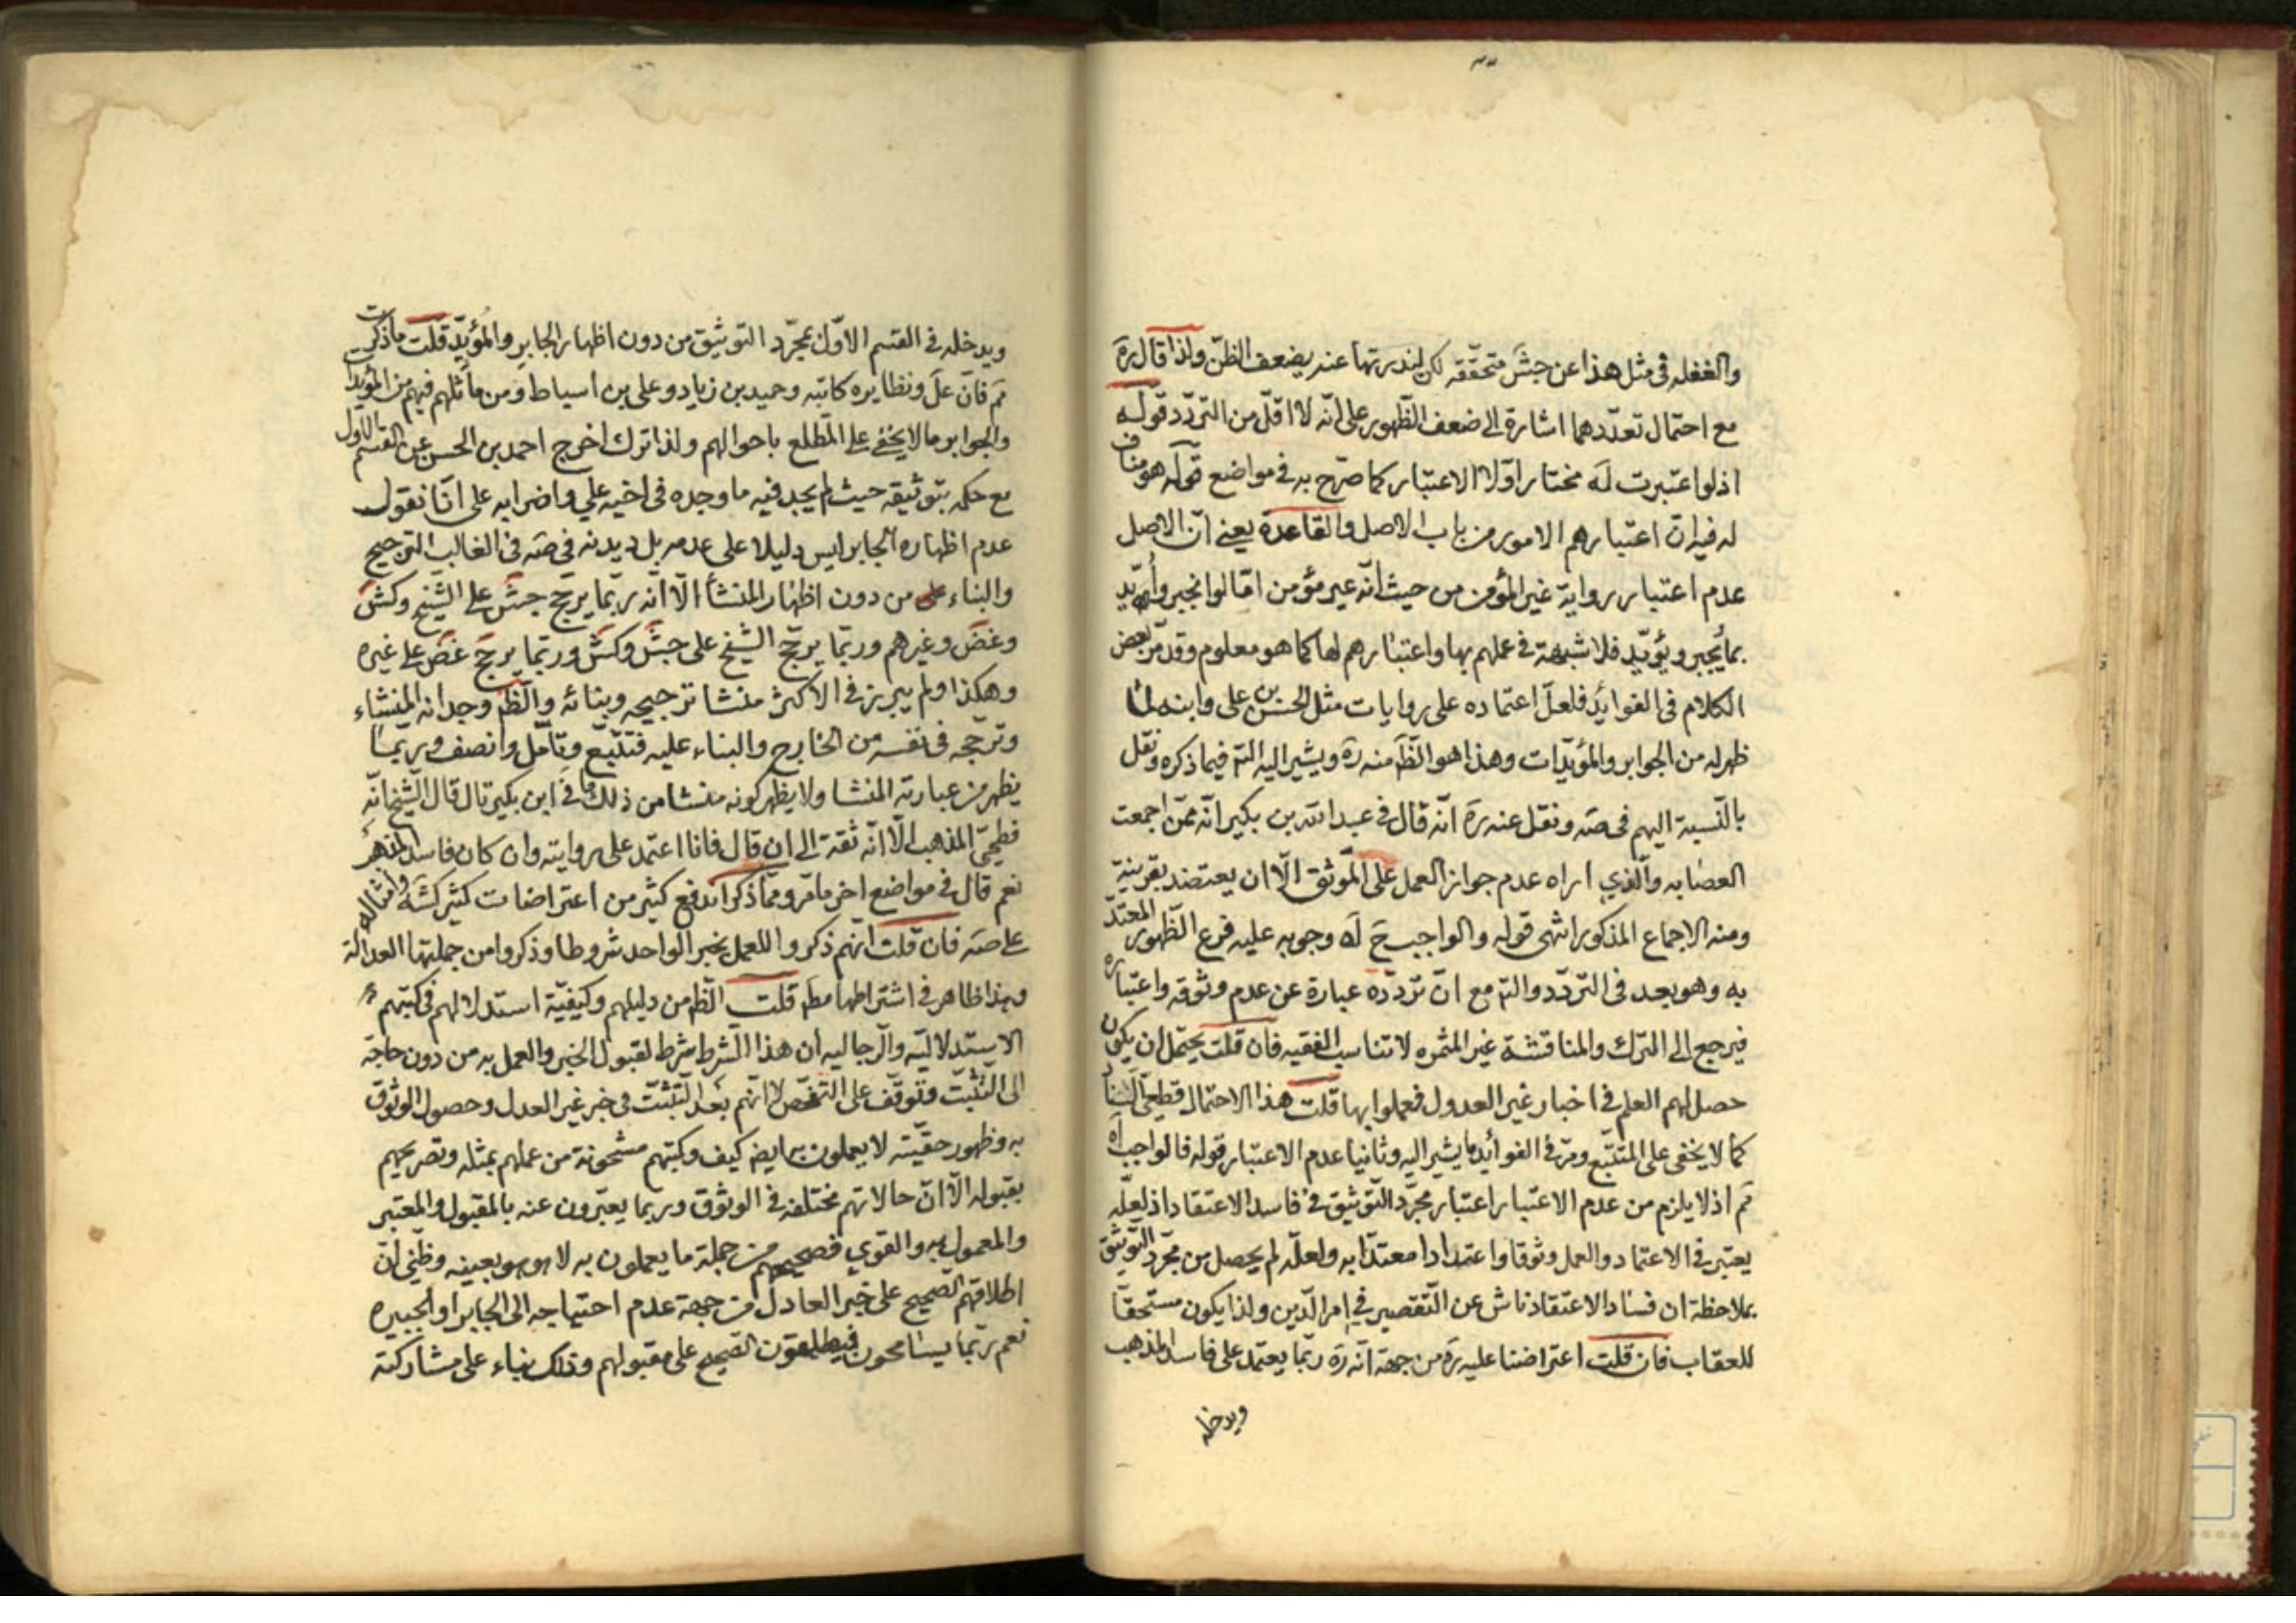 والغفله فى مثل هذا عن جش متحققه لكن لندرتها عنه يضعف الظن ولذا قال ره
مع احتمال تعددهما اشارة الى ضعف الظهور على انه لا اقل من التردد قوله
اذ لو اعتبرت له مختار اولا الاعتبار كما صرح به فى مواضع قوله هو مناف
له فيه ان اعتبارهم الامور من باب الاصل والقاعدة يعنى ان الاصل
عدم اعتبار رواية غير المؤمن من حيث انه غير مؤمن اما لو انجبر وأيد
بما يجبر ويؤيد فلا شبهة فى عملهم بها واعتبارهم لها كما هو معلوم وقد مر بعض
الكلام فى الفوايد فلعل اعتماده على روايات مثل الحسن بن على وابنه لما
ظهر له من الجوابر والمؤيدات وهذا هو الظ منه ره ويشير اليه الت‍ فيما ذكره ونقل
بالنسبة اليهم فى صه ونقل عنه ره انه قال فى عبد الله بن بكير انه ممن اجمعت
العصابه والذي اراه عدم جواز العمل على الموثق الا ان يعتضد بقرينة
ومنه الاجماع المذكور انتهى قوله والواجب ح له وجوبه عليه فرع الظهور المعتد
به وهو بعد فى التردد والت‍ مع ان تردده عبارة عن عدم وثوقه واعتباره
فيرجع الى الترك والمناقشة غير المثمره لا تناسب الفقيه فان قلت يحتمل ان يكون
حصل لهم العلم فى اخبار غير العدول فعملوا بها قلت هذا الاحتمال قطعى الفساد
كما لا يخفى على المتتبع ومر فى الفوائد ما يشير اليه وثانيا عدم الاعتبار قوله فالواجب اه
ثم اذ لا يلزم من عدم الاعتبار اعتبار مجرد التوثيق فى فاسد الاعتقاد اذ لعله
يعتبر فى الاعتماد والعمل وثوقا واعتدادا معتدا به ولعله لم يحصل من مجرد التوثيق
بملاحظة ان فساد الاعتقاد ناش عن التقصير فى امر الدين ولذا يكون مستحقا
للعقاب فان قلت اعتراضنا عليه ره من جهة انه ره ربما يعتمد على فاسد المذهب
ويدخله
ويدخله فى القسم الاول بمجرد التوثيق من دون اظهار الجابر والمؤيد قلت ما ذكرت
ثم فان عل ونظايره كاتبه وحميد بن زياد وعلى بن اسباط ومن ماثلهم فيهم من المؤيدات
والجوابر ما لا يخفى على المطلع باحوالهم ولذا ترك اخرج احمد بن الحسن عن القسم الاول
مع حكمه بتوثيقه حيث لم يجد فيه ما وجده فى اخيه علي واضرابه على انا نقول
عدم اظهاره الجابر ليس دليلا على عدمه بل ديدنه فى صه فى الغالب الترجيح
والبناء من دون اظهار المنشأ الا انه ربما يرجح جش على الشيخ وكش
وغض وغيرهم وربما يرجح الشيخ على جش وكش وربما يرجح غض على غيره
وهكذا ولم يبرز فى الاكثر منشا ترجيحه وبنائه والظ وجدانه المنشاء
وترجحه فى نفسه من الخارج والبناء عليه فتتبع وتامل وانصف وربما
يظهر من عبارته المنشا ولا يظهر كونه منشا من ذلك ما فى ابن بكير قال قال الشيخ انه
فطحى المذهب الا انه ثقة الى ان قال فانا اعتمد على روايته وان كان فاسد المذهب
نعم قال فى مواضع اخر ما مر ومما ذكر اندفع كثير من اعتراضات كثير كشه وامثاله
على صه فان قلت انهم ذكروا للعمل بخبر الواحد شروطا وذكروا من جملتها العدالة
وهذا ظاهر فى اشتراطها مط قلت الظ من دليلهم وكيفية استدلالهم فى كتبهم
الاستدلاليه والرجاليه أن هذا الشرط شرط لقبول الخبر والعمل به من دون حاجة
الى التثبت وتوقف على التفحص لا انهم بعد التثبت فى خبر غير العدل وحصول الوثوق
به وظهور حقيته لا يعملون به ايض كيف وكتبهم مشحونة من عملهم بمثله وتصريحهم
بقبوله الا ان حالاتهم مختلفه فى الوثوق وربما يعبرون عنه بالمقبول والمعتبر
والمعمول به والقوي فصحيحهم من جملة ما يعملون به لا هو هو بعينه وظنى ان
اطلاقهم الصحيح على خبر العادل من جهة عدم احتياجه الى الجابر او الجبيره
نعم ربما يسامحون فيطلقون الصحيح على مقبولهم وذلك بناء على مشاركته